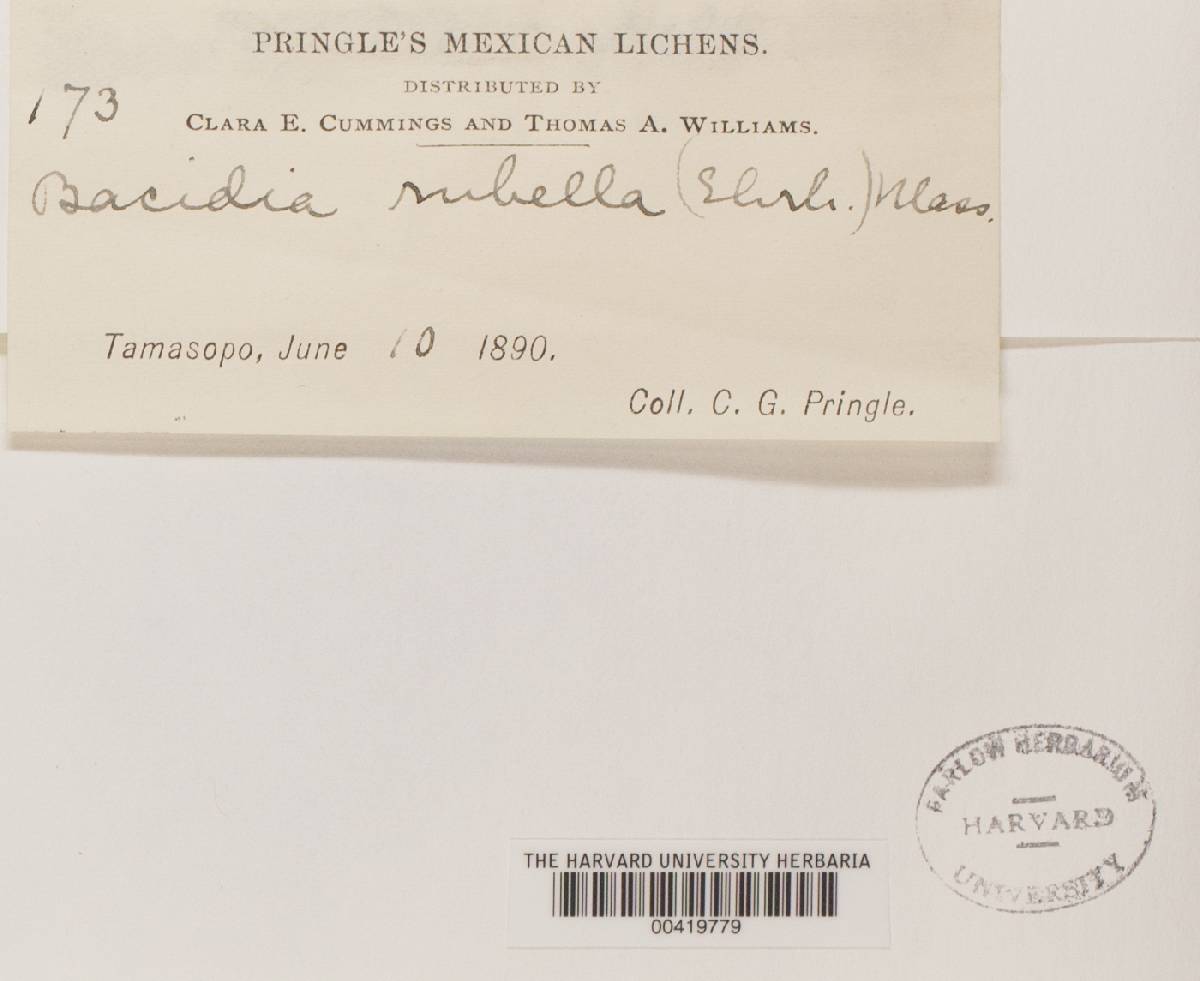 PRINGLE'S MEXICAN LICHENS.
DISTRIBUTED BY
173
CLARA E. CUMMINGS AND THOMAS A. WILLIAMS.
Bacidia rubella (Ehrh.) Mass.
Tamasopo, June 10 1890.
Coll. C. G. Pringle.
FARLOW HERBARIUM
HARVARD
UNIVERSITY
THE HARVARD UNIVERSITY HERBARIA
00419779